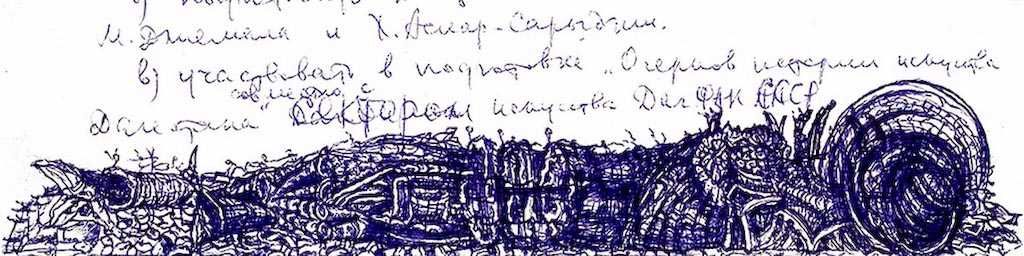 М. Джемала и Х. Аскар-Сарыджи.
в) участвовать в подготовке „Очерков истории искусства
совместно с
Дагестана" сектором искусства Даг ФАН СССР